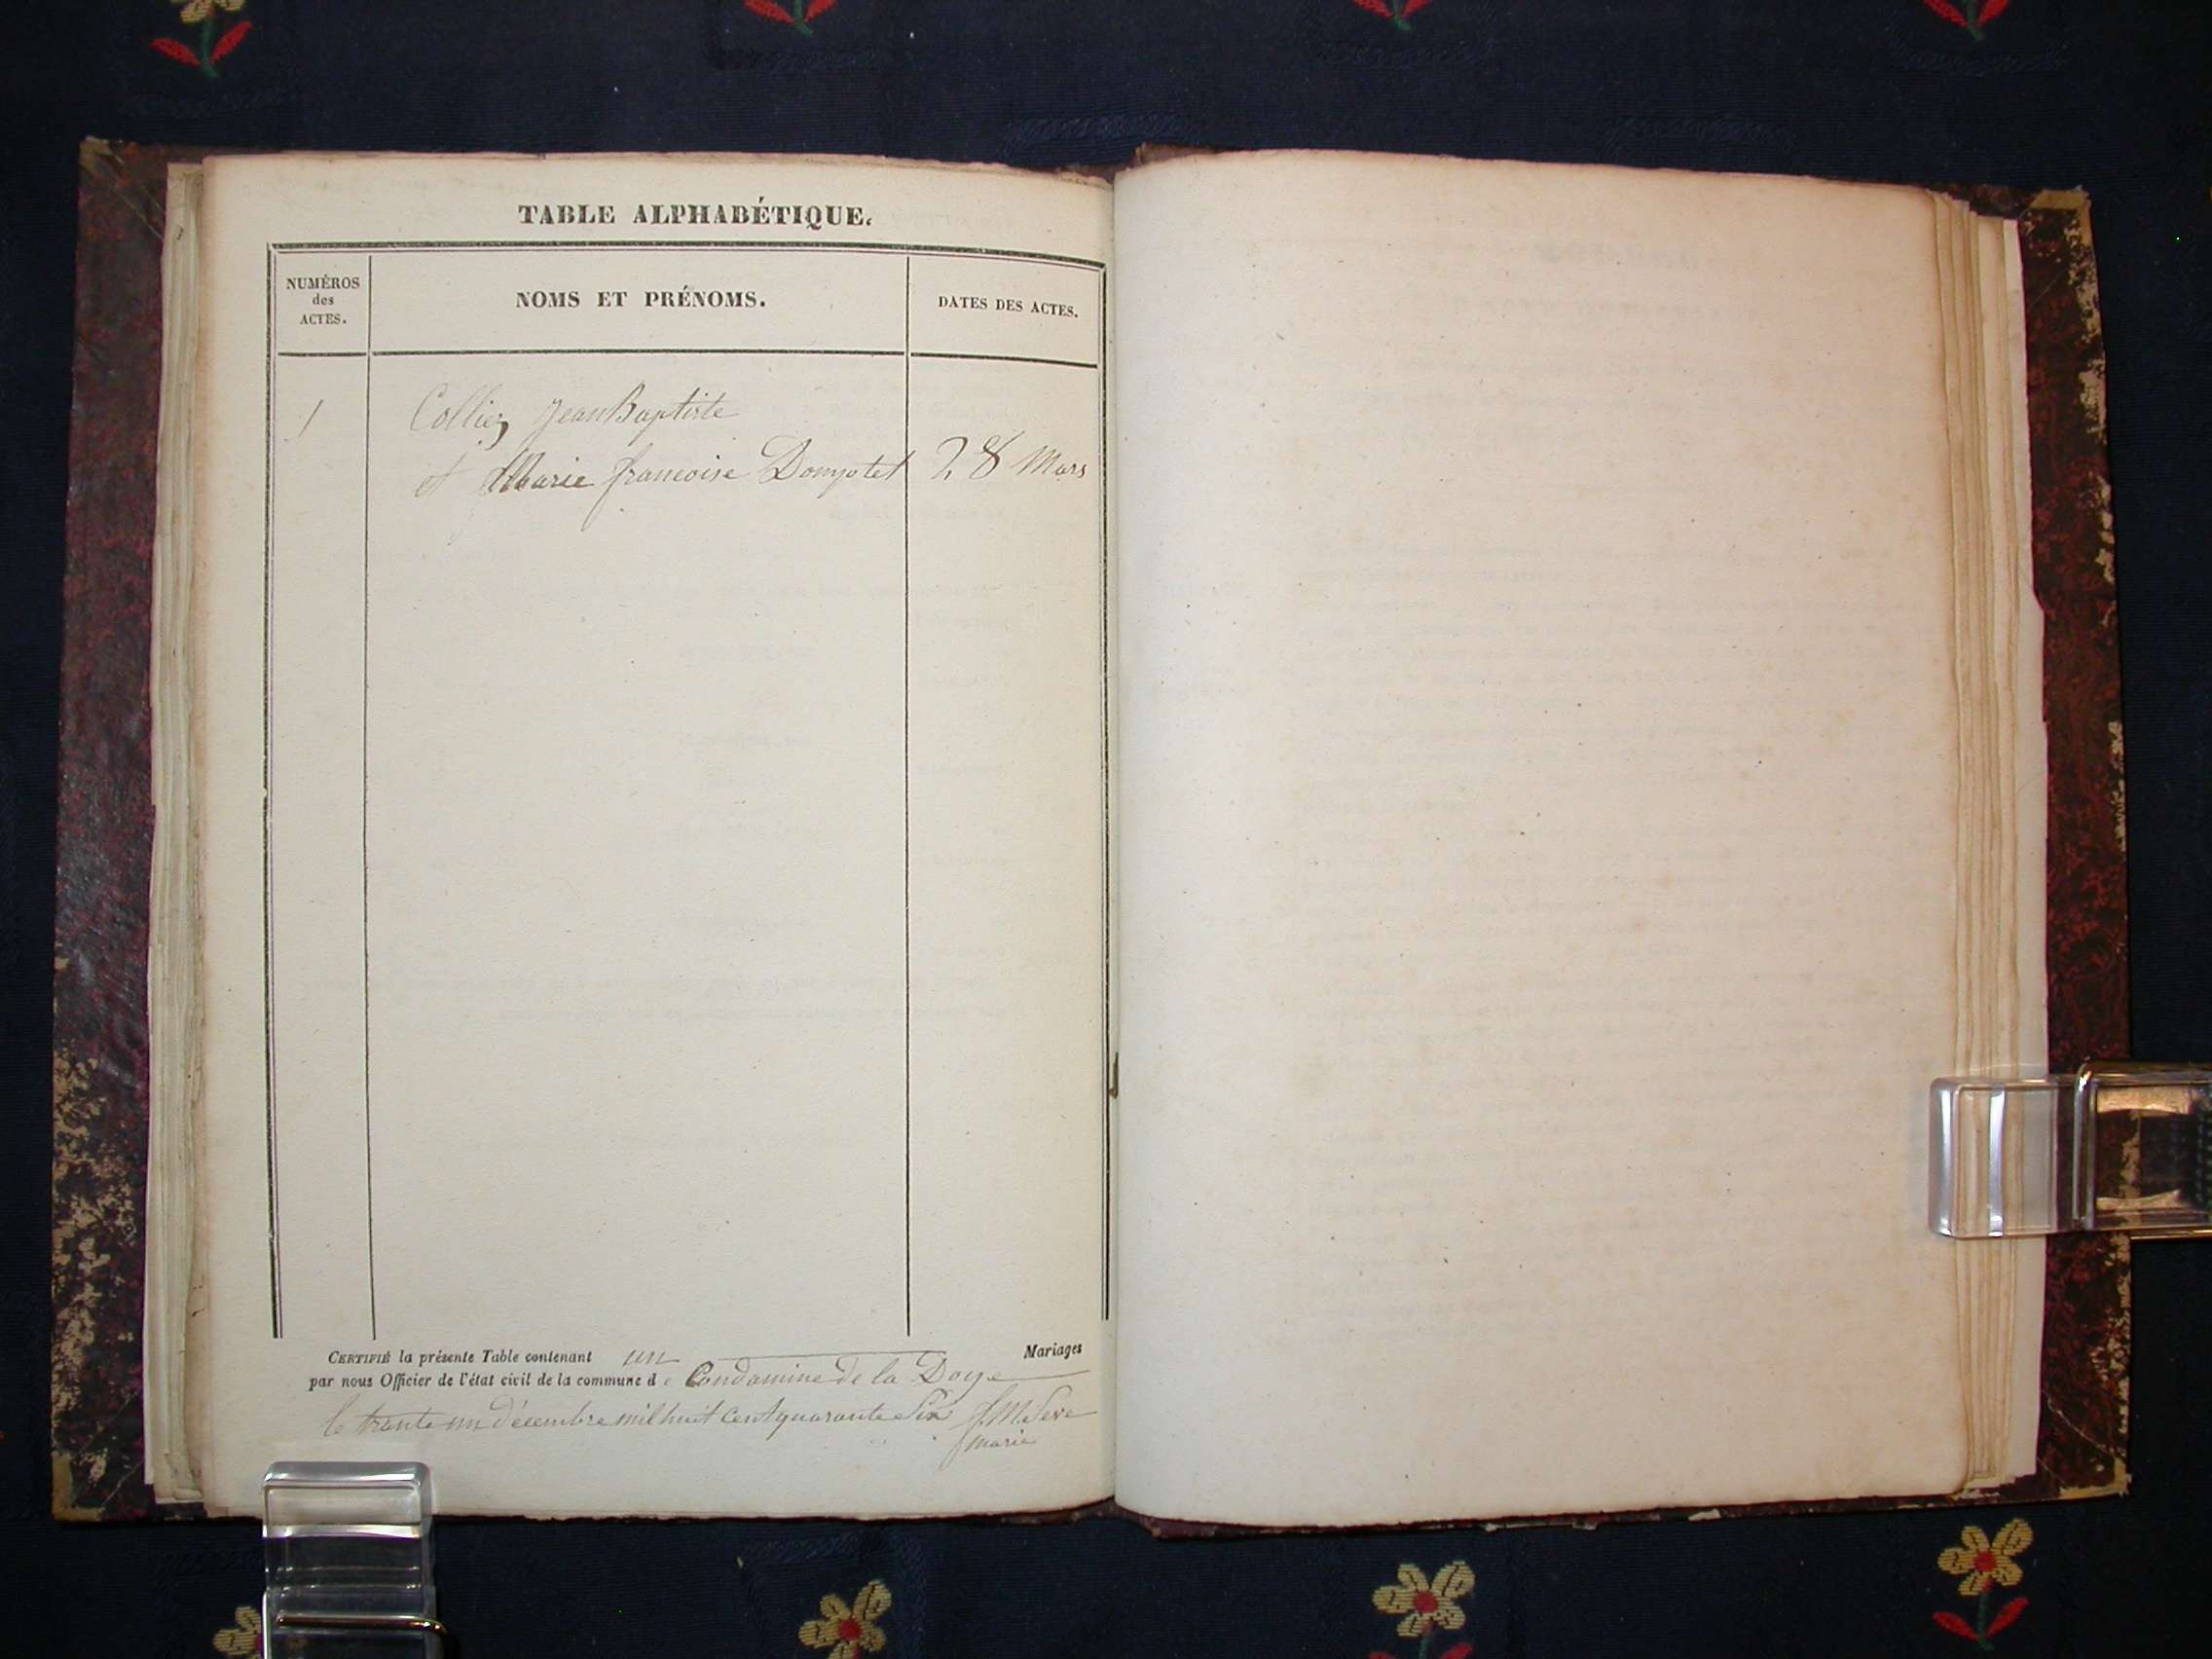 TABLE ALPHABÉTIQUE.
NUMÉROS
des
ACTES.
NOMS ET PRÉNOMS.
DATES DES ACTES.
1 Colliez Jean Baptiste
et Marie francoise Dompotet 28 Mars
CERTIFIÉ la présente Table contenant un Mariages
par nous Officier de l'état civil de la commune de Condamine de la Doye
le trante un décembre mil huit cent quarante Six J. M. Seve
marie